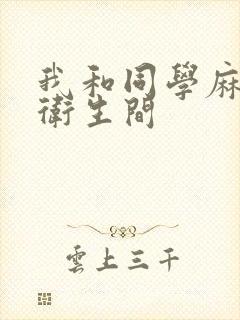 我和同學麻
衛生間
雲上三千